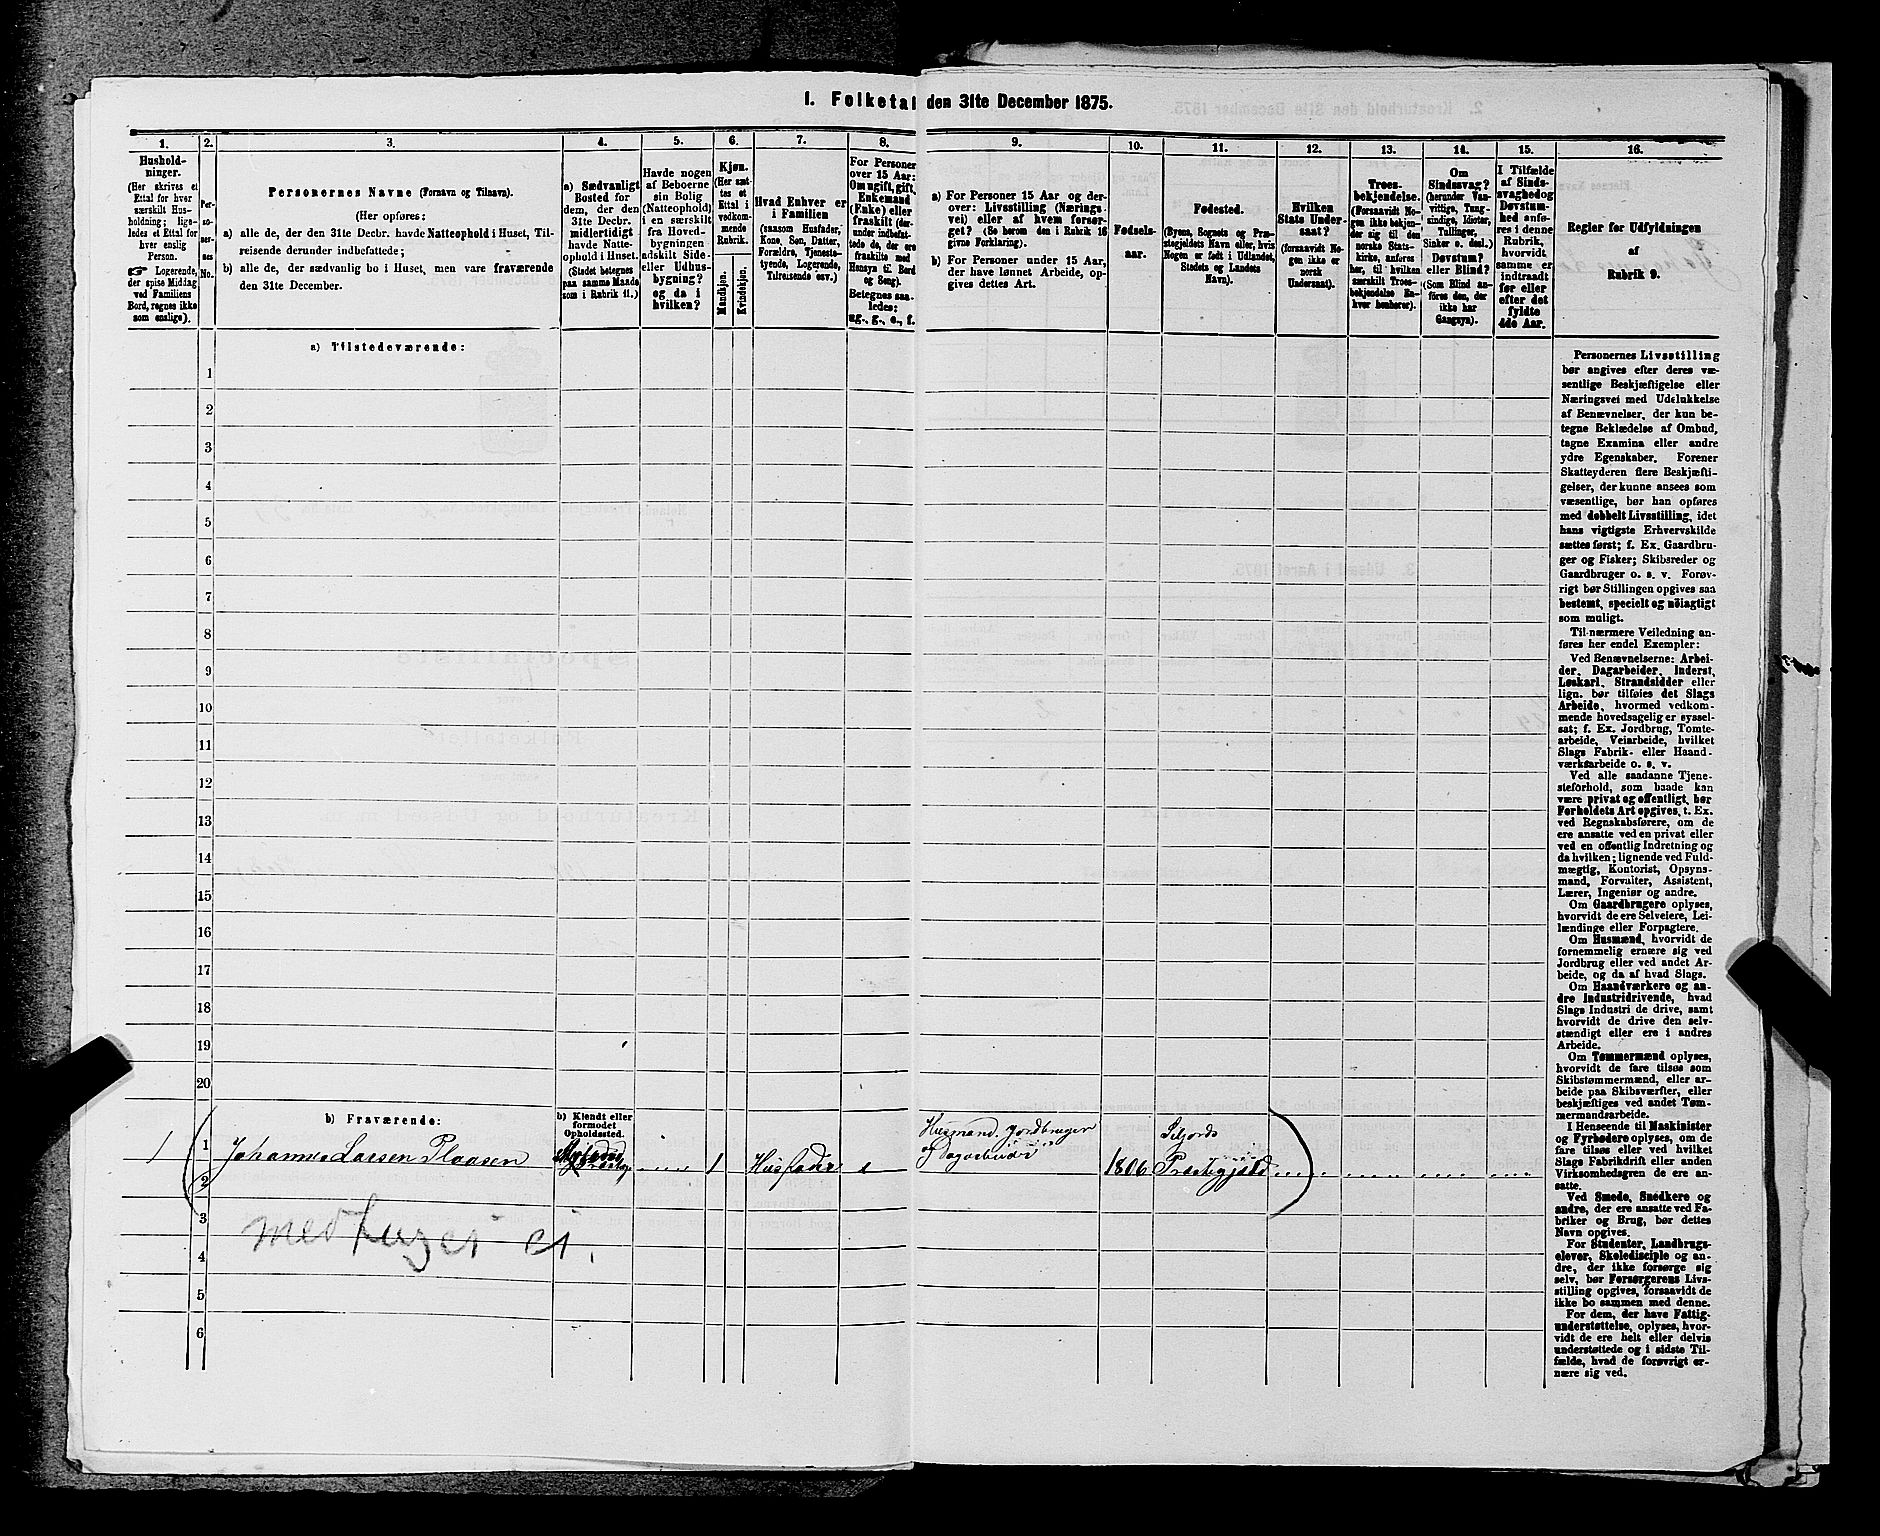 1. Folketal den 31te December 1875.
1.
2.
3.
4.
5.
6.
7.
8.
9.
10.
11.
12.
13.
14.
15.
16.
Hushold-
ninger.
(Her skrives et
Ettal for hver
særskilt Hus-
holdning; lige-
ledes et Ettal for
hver enslig
Person.
☞ Logerende,
der spise Middag
ved Familiens
Bord, regnes ikke
som enslige).
Per-
so-
ner-
nes
No.
Personernes Navne (Fornavn og Tilnavn).
(Her opføres:
a) alle de, der den 31te Decbr. havde Natteophold i Huset, Til-
reisende derunder indbefattede;
b) alle de, der sædvanlig bo i Huset, men vare fraværende
den 31te December.
a) Sædvanligt
Bosted for
dem, der den
31te Decbr.
midlertidigt
havde Natte-
ophold i Huset.
(Stedet betegnes
paa samme Maade
som i Rubrik 11.)
Havde nogen
af Beboerne
sin Bolig
(Natteophold)
i en særskilt
fra Hoved-
bygningen
adskilt Side-
eller Udhus-
bygning?
og da i
hvilken?
Kjøn.
(Her sæt-
tes et
Ettal i
vedkom-
mende
Rubrik.
Mandkjøn.
Kvindekjøn.
Hvad Enhver er
i Familien
(saasom Husfader,
Kone, Søn, Datter,
Forældre, Tjeneste-
tyende, Logerende,
Tilreisende osv.)
For Personer
over 15 Aar:
Om ugift, gift,
Enkemand
(Enke) eller
fraskilt (der-
under indbefat-
tede de, der ere
fraskilte med
Hensyn til Bord
og Seng).
Betegnes saa-
ledes:
ug., g., e., f.
a) For Personer 15 Aar og der-
over: Livsstilling (Nærings-
vei) eller af hvem forsør-
get? (Se herom den i Rubrik 16
givne Forklaring).
b) For Personer under 15 Aar,
der have lønnet Arbeide, op-
gives dettes Art.
Fødsels-
aar.
Fødested.
(Byens, Sognets og Præ-
stegjeldets Navn eller, hvis
Nogen er født i Udlandet,
Stedets og Landets
Navn).
Hvilken
Stats Under-
saat?
(forsaavidt No-
gen ikke er
norsk
Undersaat).
Troes-
bekjendelse.
(Forsaavidt No-
gen ikke bekjen-
der sig til den
norske Stats-
kirke, anføres
her, til hvilken
særskilt Troes-
bekjendelse En-
hver henhører).
Om
Sindssvag?
(herunder Van-
vittige, Tung-
sindige, Idioter,
Tullinger,
Sinker o. desl.)
Døvstum?
eller Blind?
(Som Blind an-
føres den, der
ikke har
Gangsyn).
I Tilfælde
af Sinds-
svaghed og
Døvstum-
hed anfø-
res i denne
Rubrik,
hvorvidt
samme er
indtraadt
før eller
efter det
fyldte
4de Aar.
Regler for Udfyldningen
af
Rubrik 9.
a) Tilstedeværende:
1
2
3
4
5
6
7
8
9
10
11
12
13
14
15
16
17
18
19
20
b) Fraværende:
b) Kjendt eller
formodet
Opholdssted.
1 1 Johannes Larsen Plaasen 1 Husfader e Husmand. Jordbruger 1806 Seljords
Dagarbeider Præstegjæld
2
3
medtages ei.
4
5
6
Personernes Livsstilling
bør angives efter deres væ-
sentlige Beskjæftigelse eller
Næringsvei med Udelukkelse
af Benævnelser, der kun be-
tegne Beklædelse af Ombud,
tagne Examina eller andre
ydre Egenskaber. Forener
Skatteyderen flere Beskjæfti-
gelser, der kunne ansees som
væsentlige, bør han opføres
med dobbelt Livsstilling, idet
hans vigtigste Erhvervskilde
sættes først; f. Ex. Gaardbru-
ger og Fisker; Skibsreder og
Gaardbruger o. s. v. Forøv-
rigt bør Stillingen opgives saa
bestemt, specielt og nöiagtigt
som muligt.
Til nærmere Veiledning an-
føres her endel Exempler:
Ved Benævnelserne: Arbei-
der, Dagarbeider, Inderst,
Løskarl, Strandsidder eller
lign. bør tilføies det Slags
Arbeide, hvormed vedkom-
mende hovedsagelig er syssel-
sat; f. Ex. Jordbrug, Tomte-
arbeide, Veiarbeide, hvilket
Slags Fabrik- eller Haand-
værksarbeide o. s. v.
Ved alle saadanne Tjene-
steforhold, som baade kan
være privat og offentligt, bør
Forholdets Art opgives, t. Ex.
ved Regnskabsførere, om de
ere ansatte ved en privat eller
ved en offentlig Indretning og
da hvilken; lignende ved Fuld-
mægtig, Kontorist, Opsyns-
mand, Forvalter, Assistent,
Lærer, Ingeniør og andre.
Om Gaardbrugere oplyses,
hvorvidt de ere Selveiere, Lei-
lændinge eller Forpagtere.
Om Husmænd, hvorvidt de
fornemmelig ernære sig ved
Jordbrug eller ved andet Ar-
beide, og da af hvad Slags.
Om Haandværkere og an-
dre Industridrivende, hvad
Slags Industri de drive, samt
hvorvidt de drive den selv-
stændigt eller ere i andres
Arbeide.
Om Tømmermænd oplyses,
hvorvidt de fare tilsøs som
Skibstømmermænd, eller ar-
beide paa Skibsværfter, eller
beskjæftiges ved andet Tøm-
mermandsarbeide.
I Henseende til Maskinister
og Fyrbødere oplyses, om de
fare tilsøs eller ved hvilket
Slags Fabrikdrift eller anden
Virksomhedsgren de ere an-
satte.
Ved Smede, Snedkere og
andre, der ere ansatte ved Fa-
briker og Brug, bør dettes
Navn opgives.
For Studenter, Landbrugs-
elever, Skoledisciple og an-
dre, der ikke forsørge sig
selv, bør Forsørgerens Livs-
stilling opgives, forsaavidt de
ikke bo sammen med denne.
For dem, der have Fattig-
understøttelse, oplyses, hvor-
vidt de ere helt eller delvis
understøttede og i sidste Til-
fælde, hvad de forøvrigt er-
nære sig ved.